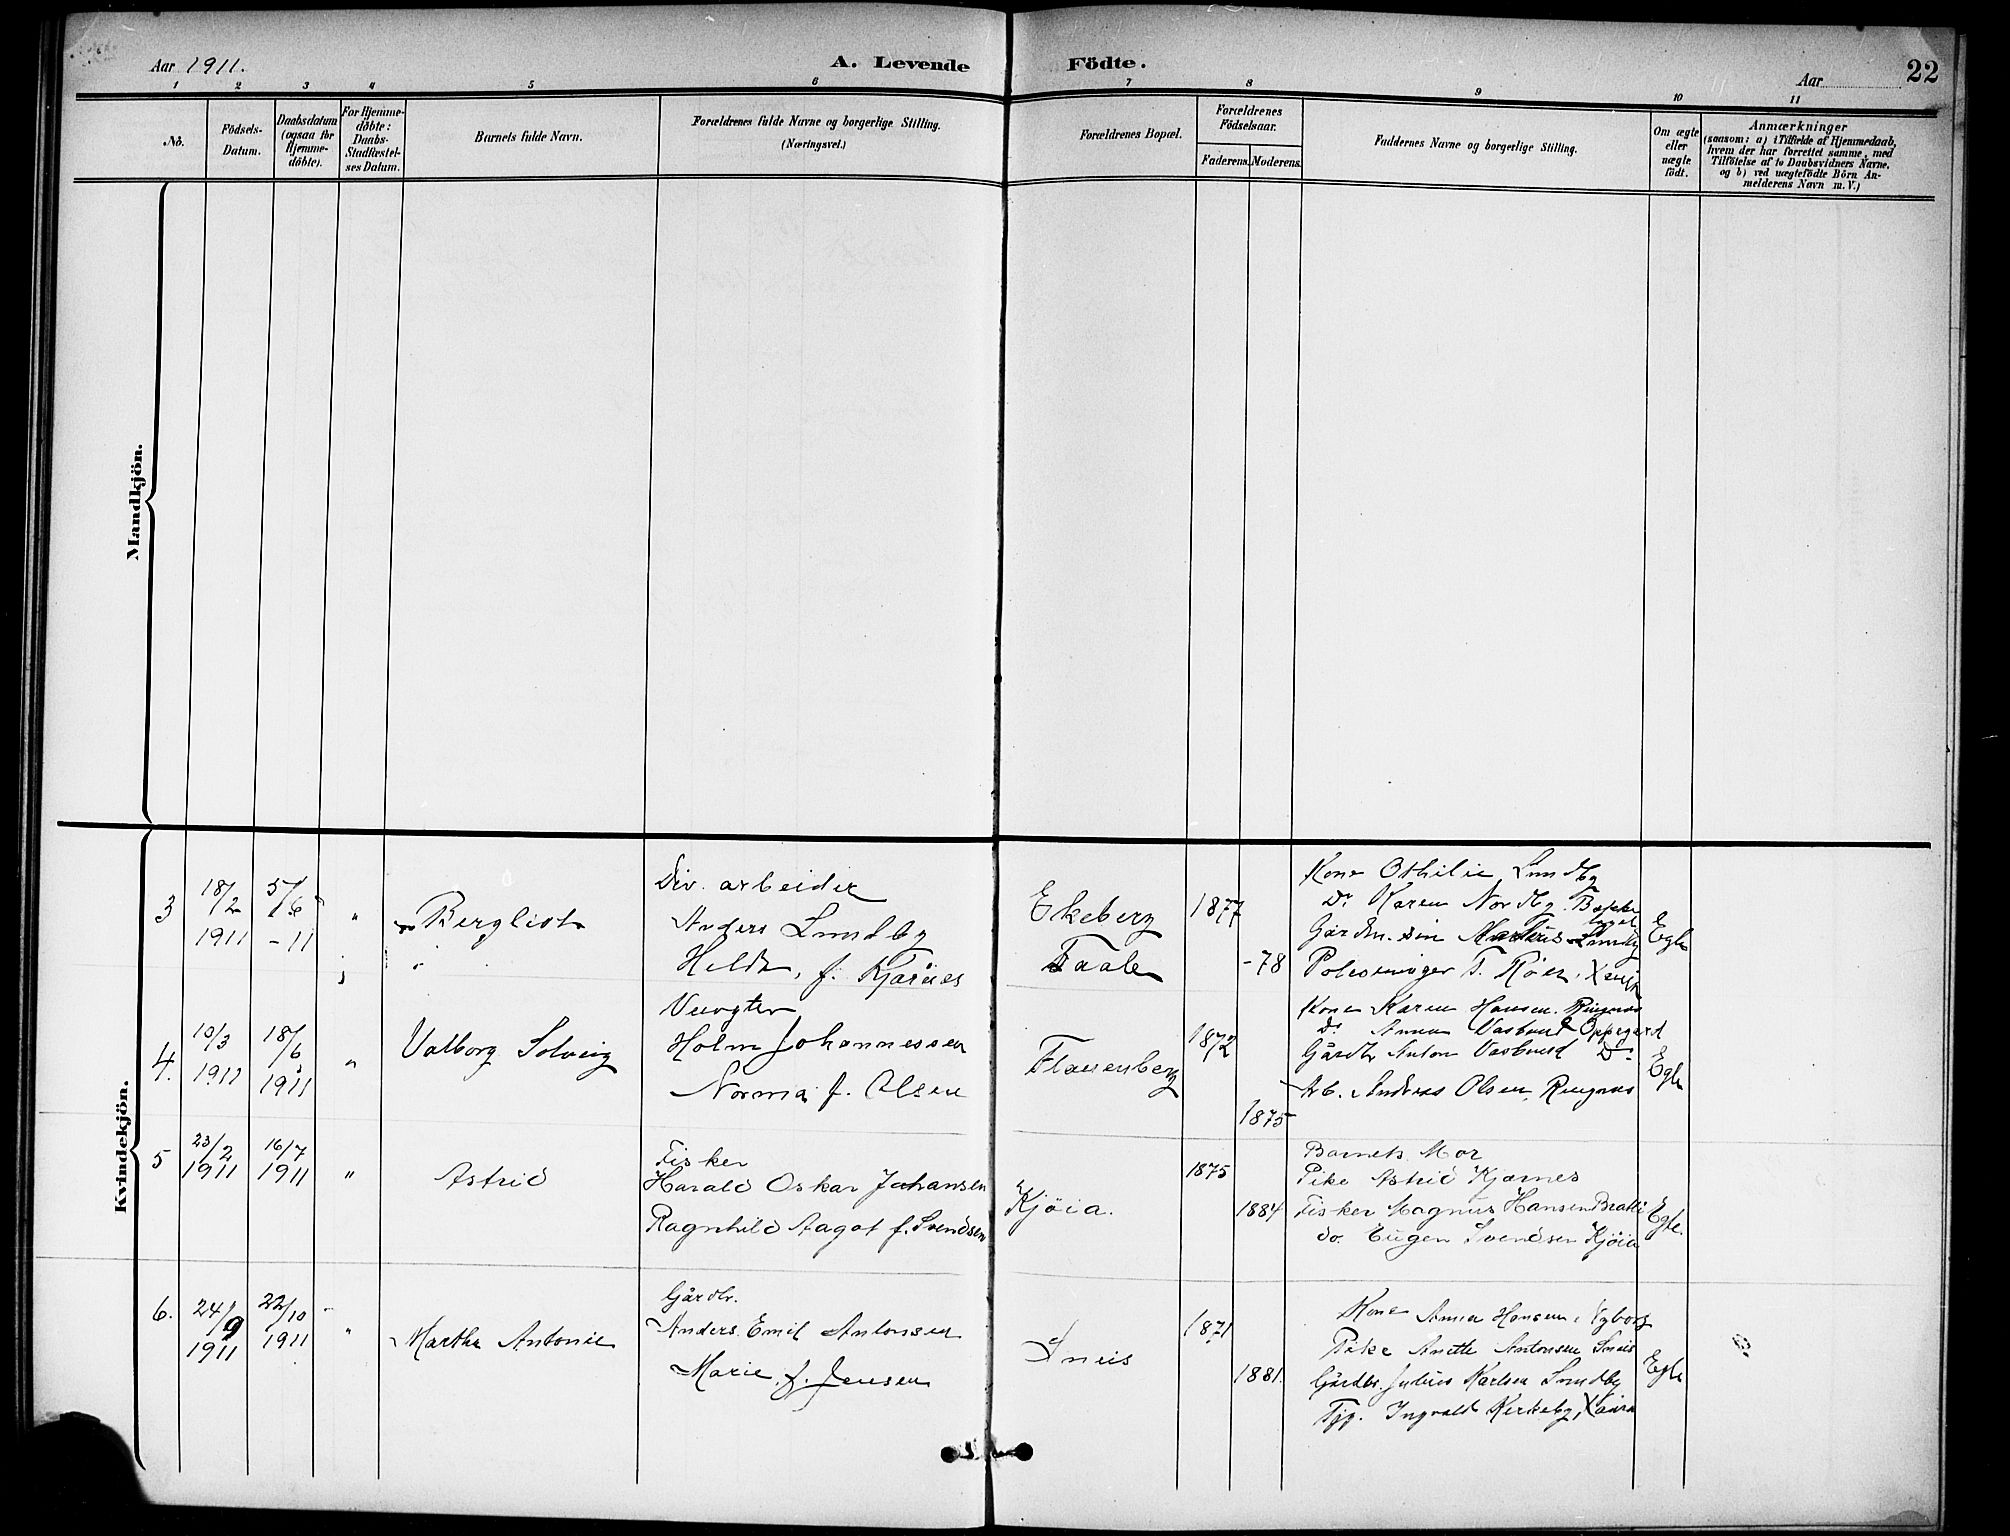 Aar 1911.
A. Levende
Födte.
Aar
22
1 2 3 4 5 6 7 8 9 10 11
No.
Födsels-
Datum.
Daabsdatum
(ogsaa for
Hjemme-
döbte).
For Hjemme-
döbte:
Daabs-
Stadfæstel-
ses Datum.
Barnets fulde Navn.
Forældrenes fulde Navne og borgerlige Stilling.
(Næringsvei.)
Forældrenes Bopæl.
Forældrenes
Födselsaar.
Faderens. Moderens.
Faddernes Navne og borgerlige Stilling.
Om ægte
eller
uægte
födt.
Anmærkninger
(saasom: a) i Tilfælde af Hjemmedaab,
hvem der har forrettet samme, med
Tilföielse af to Daabsvidners Navne,
og b) ved uægtefödte Börn An-
melderens Navn m. V.)
Mandkjön.
Kvindekjön.
3
18/2
1911
5/6
-11
"
Bergliot
Div. arbeider
Anders Lundby
Hilda, f. Kjærnes
Ekeberg
Taale
1877
-78
Kone Othilie Lundby
Do Karen Nordby
Gårdm. sin Martius Lundby
Egte
4.
10/3
1911
18/6
1911
"
Valborg Solveig
Holm Johannessen
Norma f. Olsen
1872
1875
Kone Karen Hansen. Ringnes
Do Anna Vasbund Oppegård
Gårdbr Anton Vasbund Do
Arb. Andreas Olsen, Ringnes
Egte
5
23/2
1911
16/7
1911
"
Astrid
Fisker
Harald Oskar Johansen
Ragnhild Aagot f. Svendsen
Kjöia.
1875
1884
Barnets Mor
Pike Astrid Kjærnes
Fisker Magnus Hansen Bratli
do. Eugen Svendsen Kjöia
Egte.
6.
24/9
1911
22/10
1911
"
Martha Antonie
Gårdbr.
Anders Emil Antonsen
Marie f. Jensen
Sneis
1871
1881.
Kone Anna Hansen, Nyborg
Pike Anette Antonsen Sneis
Gårdbr. Julius Karlsen Lundby
Tjg. Ingvald Kirkeby,
Egte